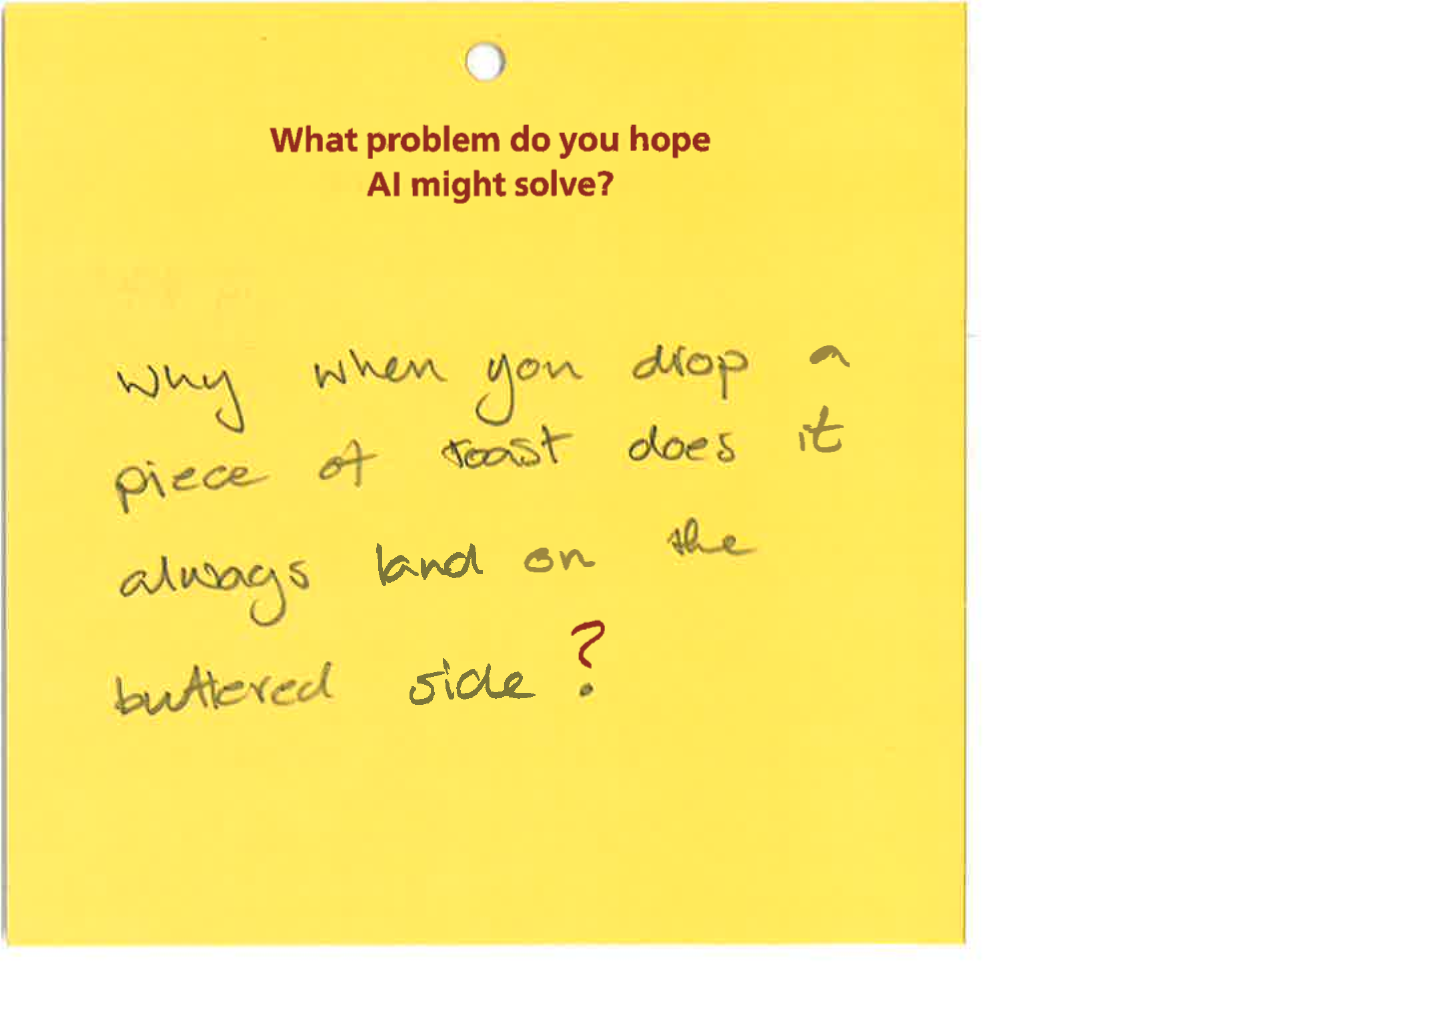 What problem do you hope
AI might solve?
Why when you drop a
piece of toast does it
always land on the
buttered side?